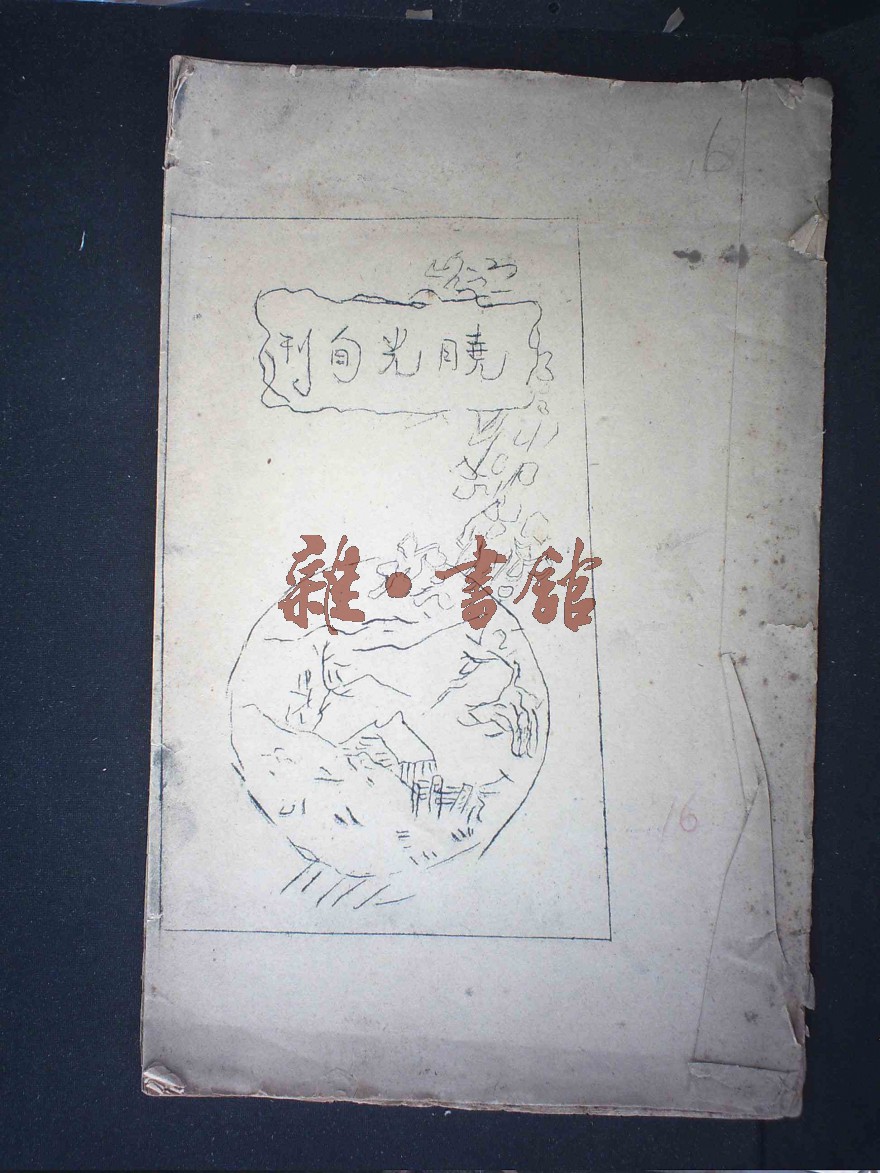 16
曉光旬刊
雜·書館
16